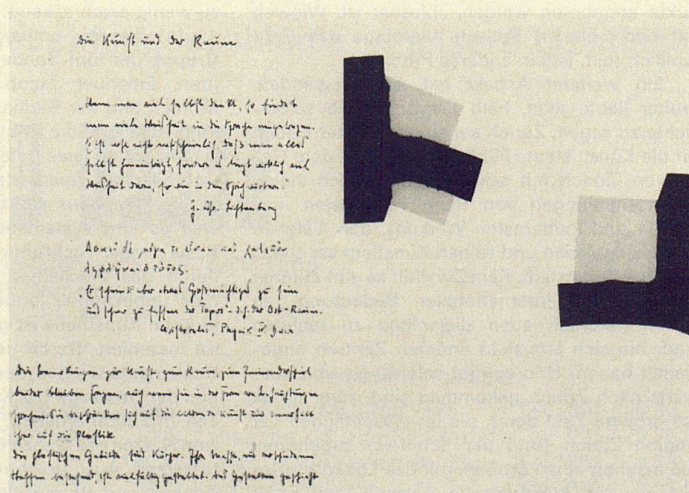 Die Kunst und der Raum
Wenn man viel selbst denkt, so findet
man viele Weisheit in die Sprache eingetragen.
Es ist wohl nicht wahrscheinlich, daß man alles
selbst hineinträgt, sondern es liegt wirklich viel
Weisheit darin, so wie in den Sprichwörtern.
G. Chr. Lichtenberg
Δοκεῖ δὲ μέγα τι εἶναι καὶ χαλεπὸν
ληφθῆναι ὁ τόπος.
Es scheint aber etwas Großmächtiges zu sein
und schwer zu fassen der Topos - d.h. der Ort-Raum.
Aristoteles, Physik, IV. Buch
Die Bemerkungen zur Kunst, zum Raum, zum Ineinanderspiel
beider bleiben Fragen, auch wenn sie in der Form von Behauptungen
sprechen. Sie beschränken sich auf die bildende Kunst und innerhalb
ihrer auf die Plastik.
Die plastischen Gebilde sind Körper. Ihre Masse, aus verschiedenen
Stoffen bestehend, ist vielfältig gestaltet. Das Gestalten geschieht